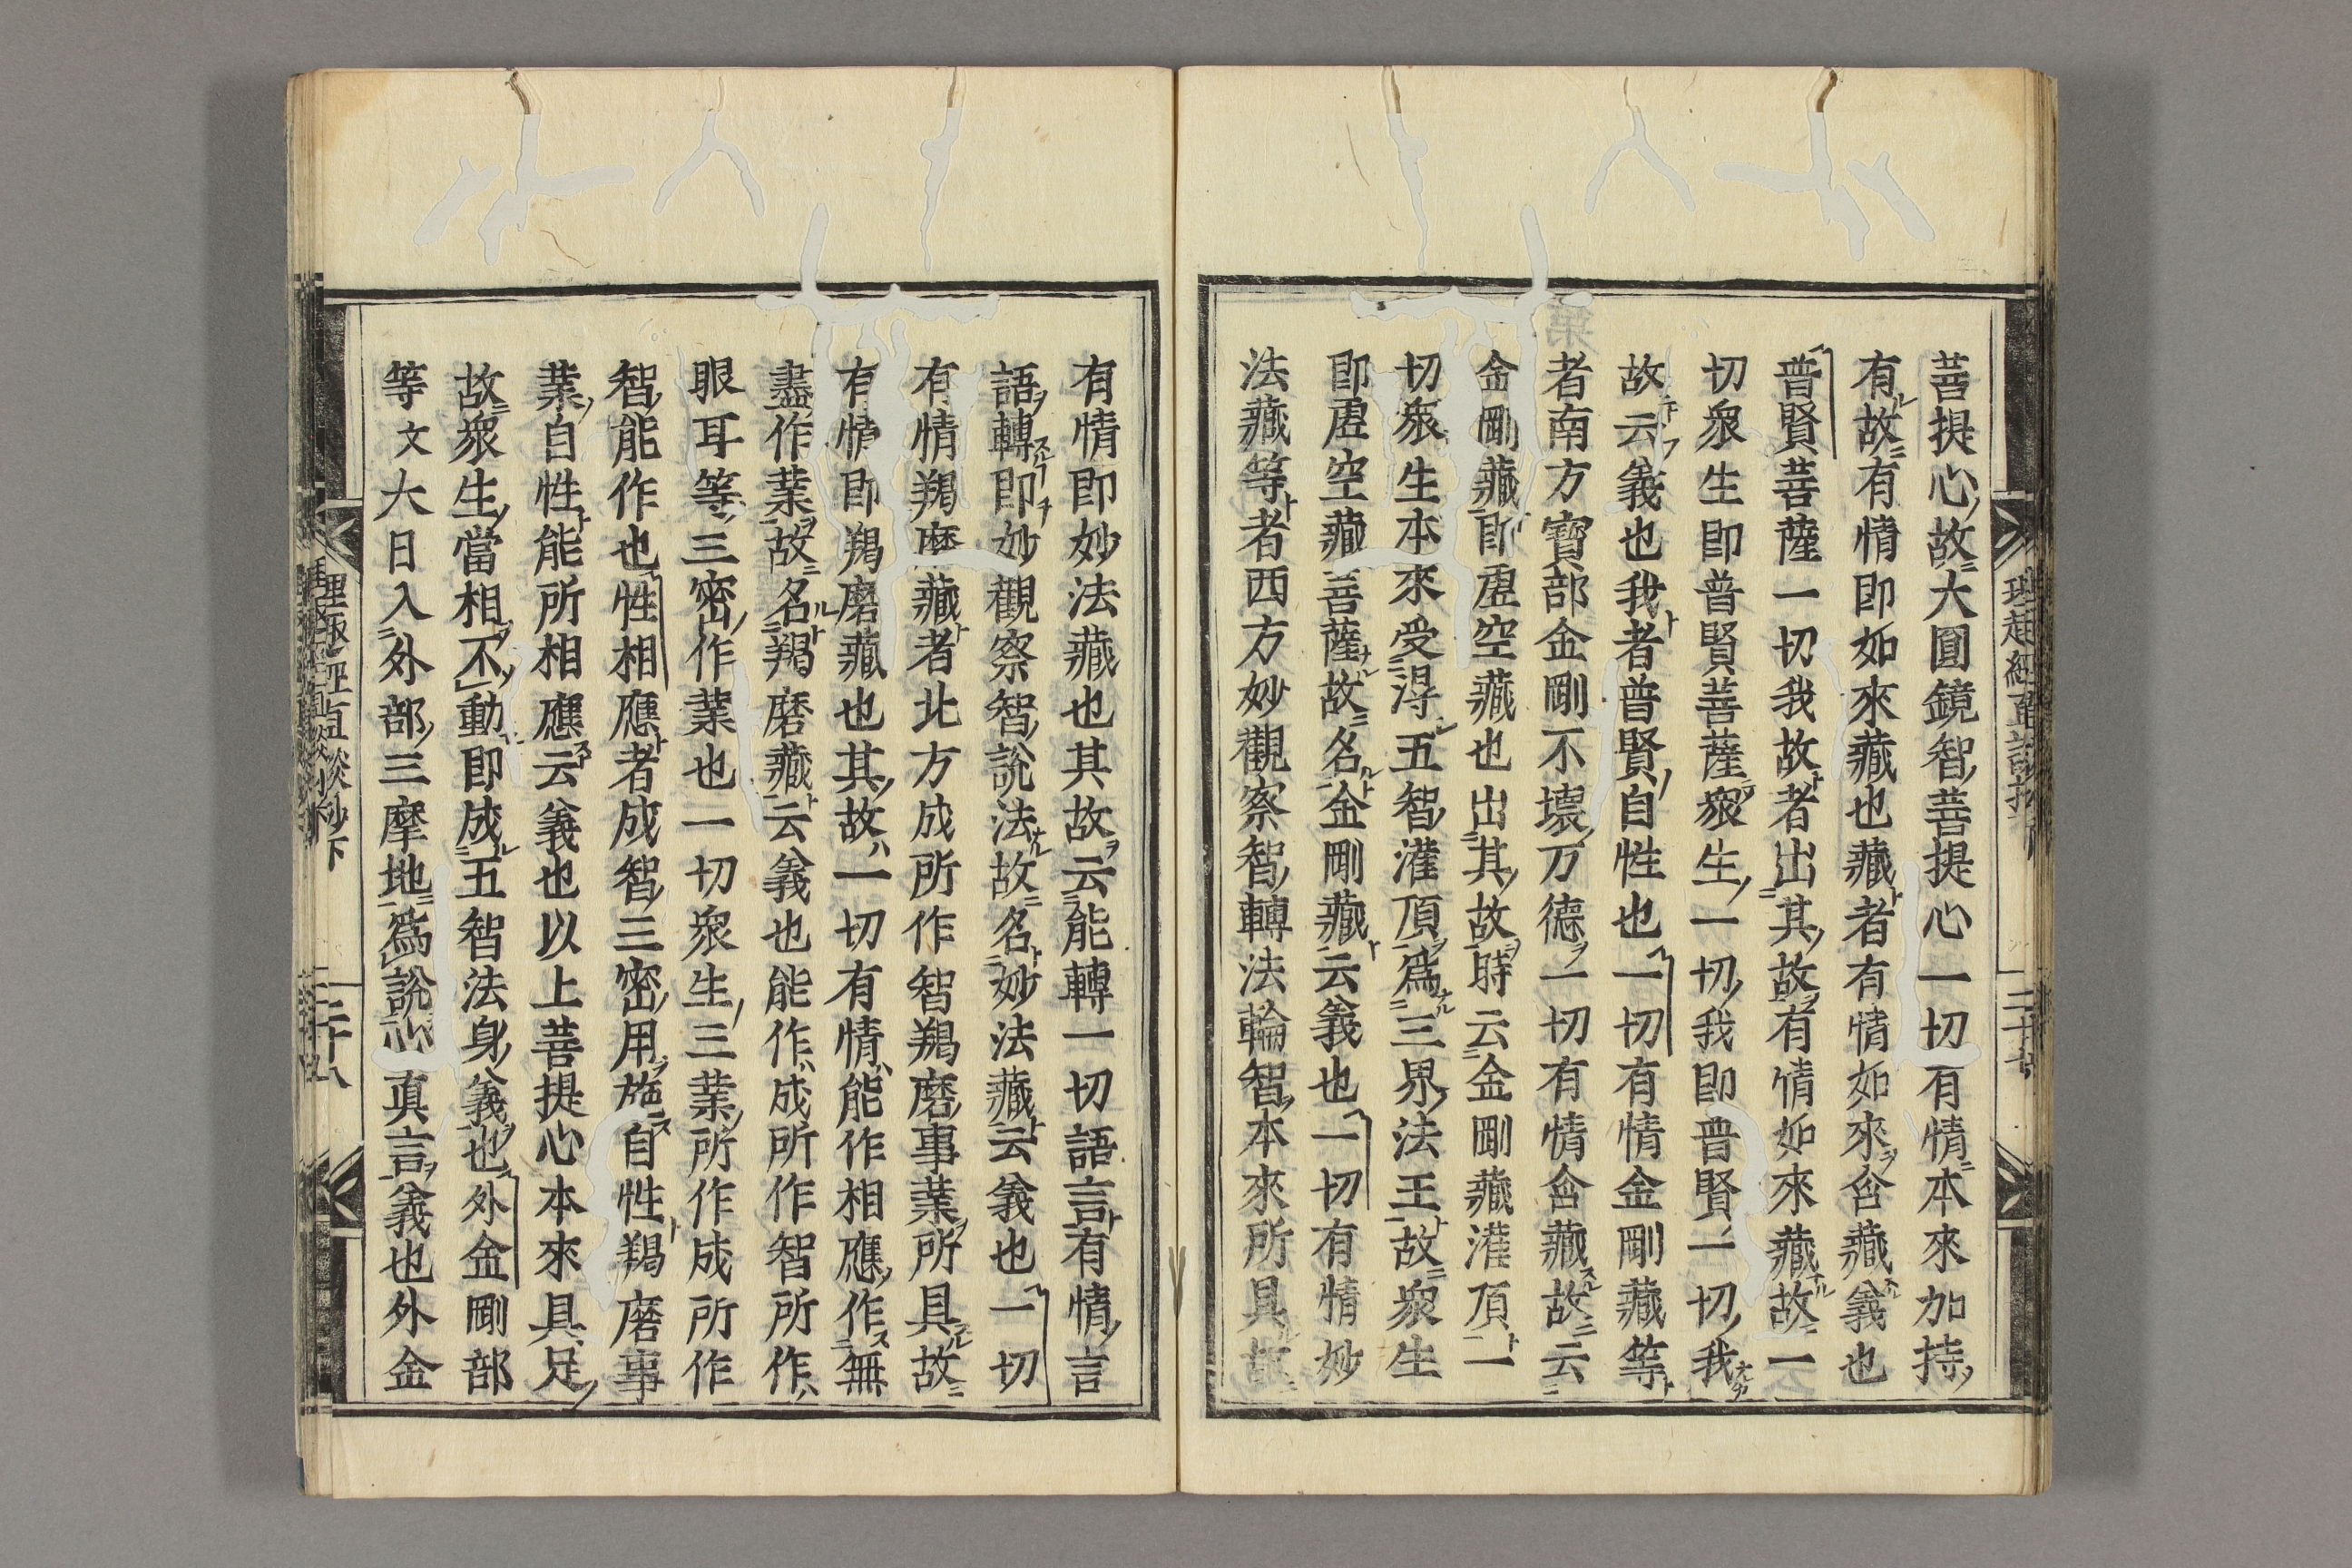 菩提心故大圓鏡智菩提心一切有情本來加持
有故有情即如來藏也藏者有情如來含藏義也
普賢菩薩一切我故者出其故有情如來藏故一
切衆生即普賢菩薩衆生一切我即普賢一切我
故云義也我者普賢自性也一切有情金剛藏等
者南方寶部金剛不壞万德一切有情含藏故云
金剛藏即虛空藏也出其故時云金剛藏灌頂一
切衆生本來受得五智灌頂爲三界法王故衆生
即虛空藏菩薩故名金剛藏云義也一切有情妙
法藏等者西方妙觀察智轉法輪智本來所具故
有情即妙法藏也其故云能轉一切語言有情言
語轉即妙觀察智說法故名妙法藏云義也一切
有情羯磨藏者北方成所作智羯磨事業所具故
有情即羯磨藏也其故一切有情能作相應作無
盡作業故名羯磨藏云義也能作成所作智所作
眼耳等三密作業也一切衆生三業所作成所作
智能作也性相應者成智三密用施自性羯磨事
業自性能所相應云義也以上菩提心本來具足
故衆生當相不動即成五智法身義也外金剛部
等文大日入外部三摩地爲說心眞言義也外金
理趣經直談鈔下
二十八